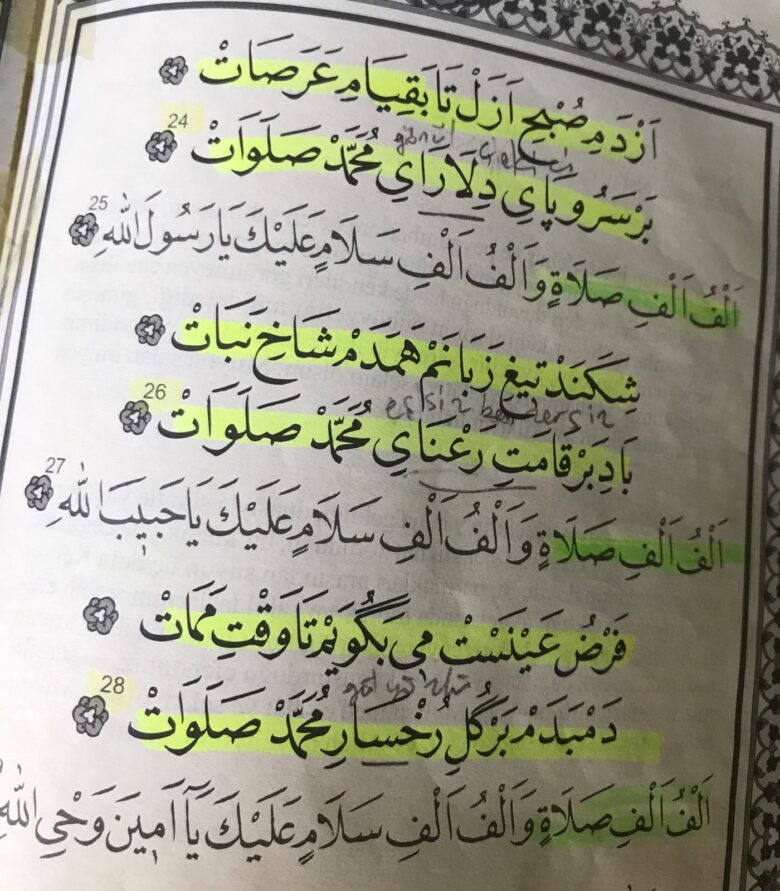 اَزْ دَمِ صُبْحِ اَزَلْ تَا بَقِيَامِ عَرَصَاتْ
24
بَرْ سَرُو پَاىِ دِلَارَاىِ مُحَمَّدْ صَلَوَاتْ
25
اَلْفُ اَلْفِ صَلَاةٍ وَاَلْفُ اَلْفِ سَلَامٍ عَلَيْكَ يَا رَسُولَ اللّٰه
شِكَنَدْ تيغِ زَبَانَمْ هَمْدَمْ شَاخِ نَبَاتْ
eşsiz benzersiz
26
بَادِ بَرْ قَامَتِ رَعْنَاىِ مُحَمَّدْ صَلَوَاتْ
27
اَلْفُ اَلْفِ صَلَاةٍ وَاَلْفُ اَلْفِ سَلَامٍ عَلَيْكَ يَا حَبٖيبَ اللّٰهِ
فَرْضُ عَيْنَسْتْ مِى بَگُويَمْ تَا وَقْتِ مَمَاتْ
28
دَمْبَدَمْ بَرْ گُلِ رُخْسَارِ مُحَمَّدْ صَلَوَاتْ
اَلْفُ اَلْفِ صَلَاةٍ وَاَلْفُ اَلْفِ سَلَامٍ عَلَيْكَ يَٓا اَمٖينَ وَحْيِ اللّٰهِ